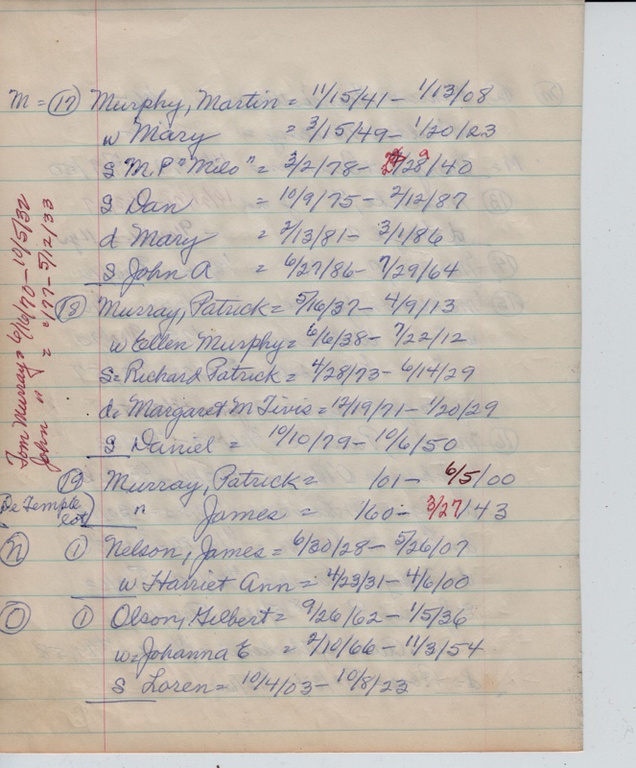 M = (17) Murphy, Martin = 11/15/41 - 1/13/08
w Mary = 3/15/49 - 1/20/23
S M.P "Milo" = 3/2/78 - /28/40
S Dan = 10/9/75 - 2/12/87
d Mary = 2/13/81 - 3/1/86
S John A = 6/27/86 - 7/29/64
(18) Murray, Patrick = 5/16/37 - 4/9/13
w Ellen Murphy = 6/6/38 - 7/22/12
S = Richard Patrick = 4/28/73 - 6/14/29
d = Margaret M Tivis = 12/19/71 - 1/20/29
S Daniel = 10/10/79 - 10/6/50
Tom Murray = 6/16/70 - 10/5/32
John " = /77 - 5/12/33
(19) Murray, Patrick = /01 - 6/5/00
(De Temple lot) " James = /60 - 3/27/43
(N) (1) Nelson, James = 6/30/28 - 5/26/07
w Harriet Ann = 4/23/31 - 4/6/00
(O) (1) Olson, Gilbert = 9/26/62 - 1/5/36
w = Johanna E = 2/10/66 - 11/3/54
S Loren = 10/4/03 - 10/8/23